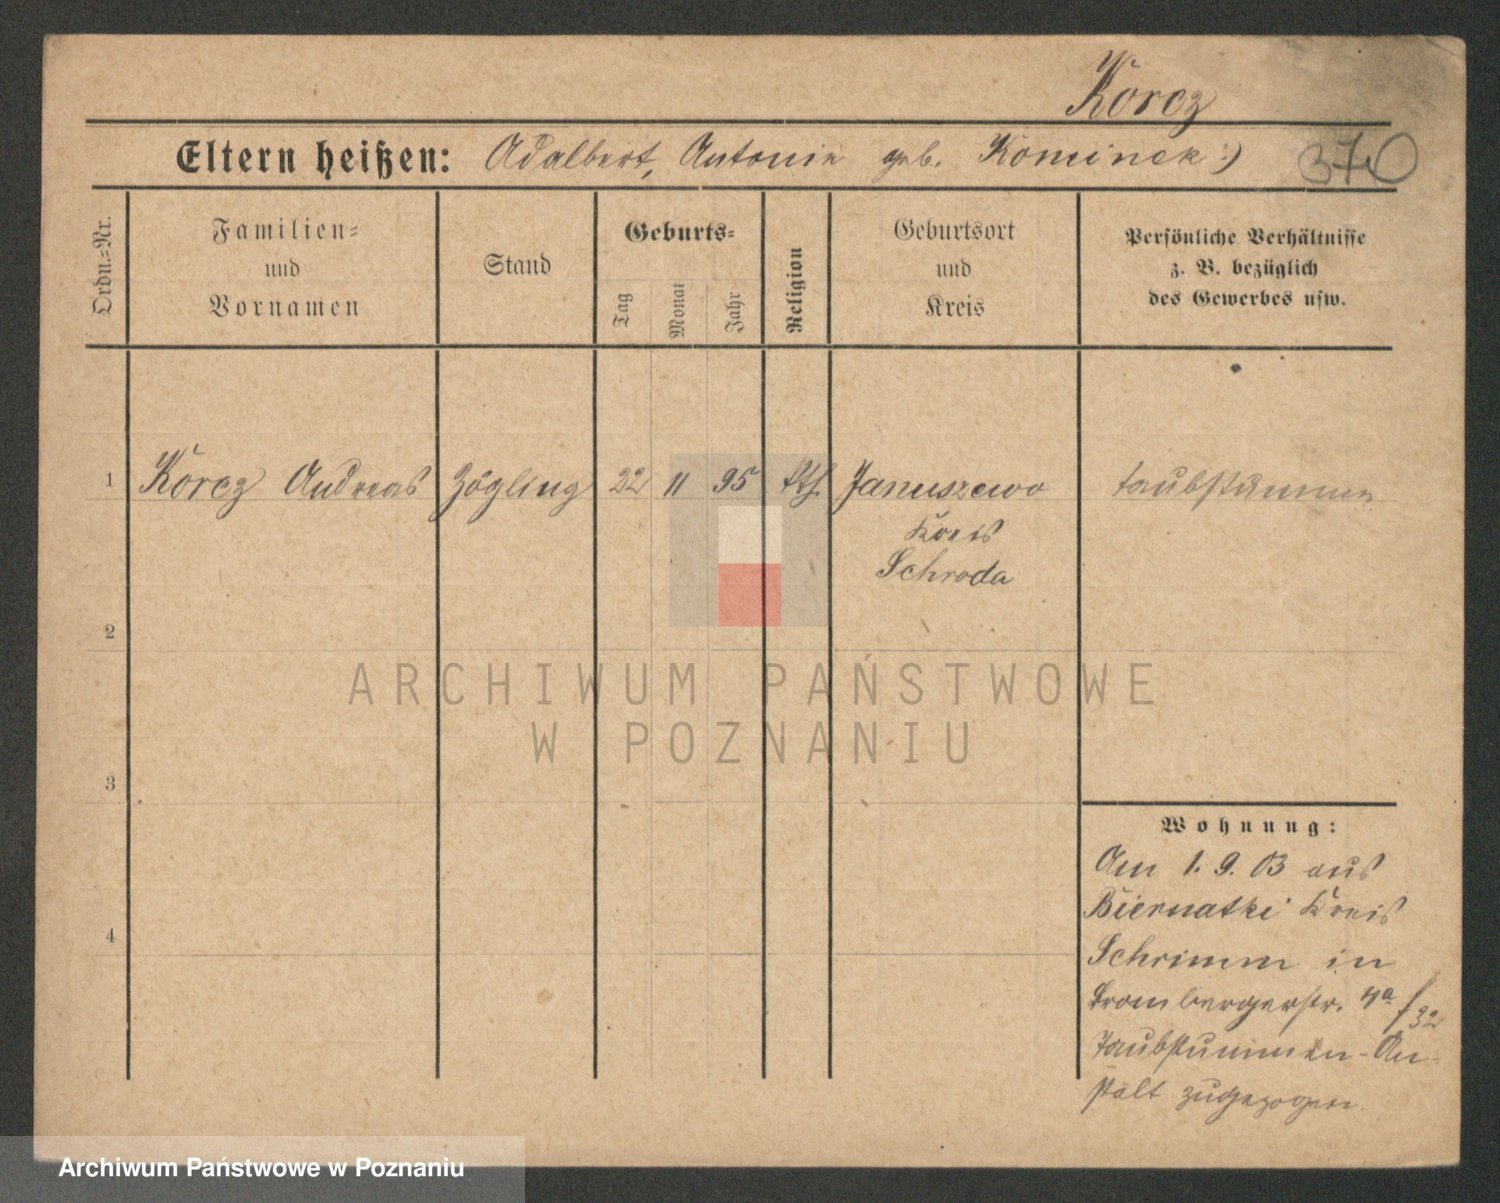 Korcz
Eltern heißen: Adalbert, Antonie geb. Kominek :)
370
Ordn.-Nr.
Familien-
und
Vornamen
Stand
Geburts-
Tag
Monat
Jahr
Religion
Geburtsort
und
Kreis
Persönliche Verhältnisse
z. B. bezüglich
des Gewerbes usw.
1 Korcz Andreas Zögling 22 11 95 kth. Januszewo taubstumm
Kreis
Schroda
2
ARCHIWUM PAŃSTWOWE
W POZNANIU
3
4
Wohnung:
Am 1. 9. 03 aus
Biernatki Kreis
Schrimm in
Brombergerstr. 4a
32
Taubstummen-An-
stalt zugezogen.
Archiwum Państwowe w Poznaniu